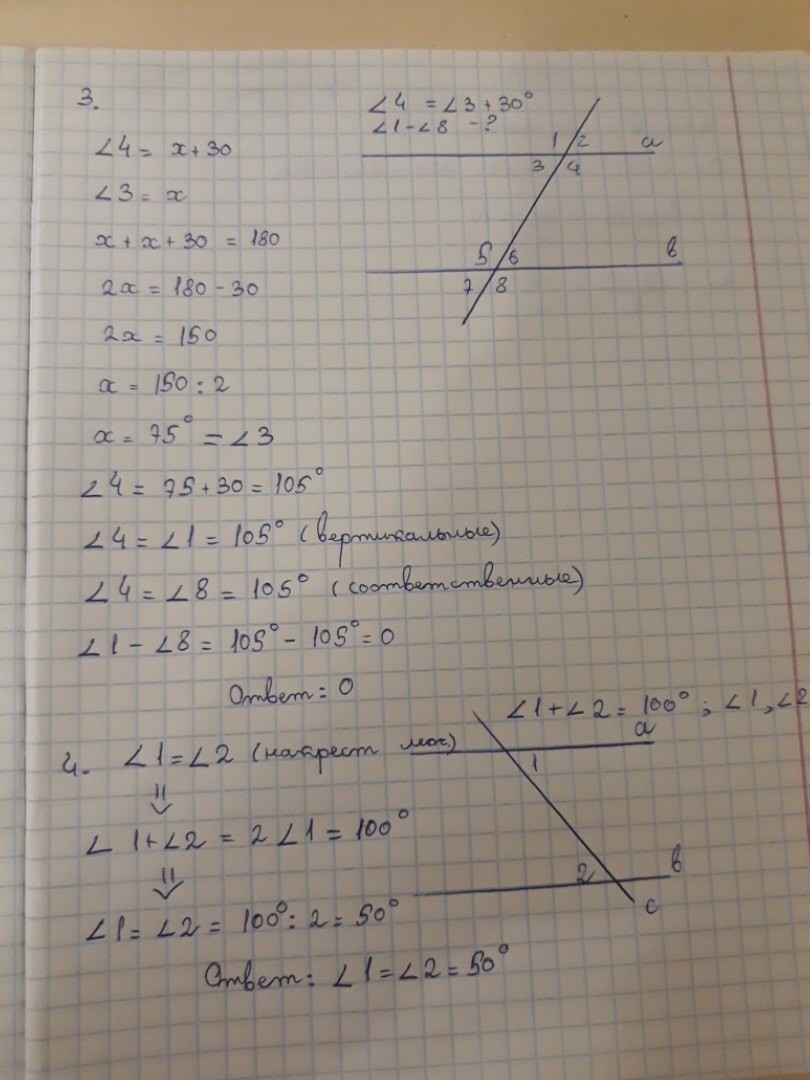 3.
∠4 = ∠3 + 30°
∠1 - ∠8 - ?
1 2 a
3 4
5 6 b
7 8
∠4 = x + 30
∠3 = x
x + x + 30 = 180
2x = 180 - 30
2x = 150
x = 150 : 2
x = 75° = ∠3
∠4 = 75 + 30 = 105°
∠4 = ∠1 = 105° (вертикальные)
∠4 = ∠8 = 105° (соответственные)
∠1 - ∠8 = 105° - 105° = 0
Ответ: 0
∠1 + ∠2 = 100° ; ∠1, ∠2
a
1
2 b
c
4. ∠1 = ∠2 (накрест леж.)
⇓
∠1 + ∠2 = 2∠1 = 100°
⇓
∠1 = ∠2 = 100° : 2 = 50°
Ответ: ∠1 = ∠2 = 50°